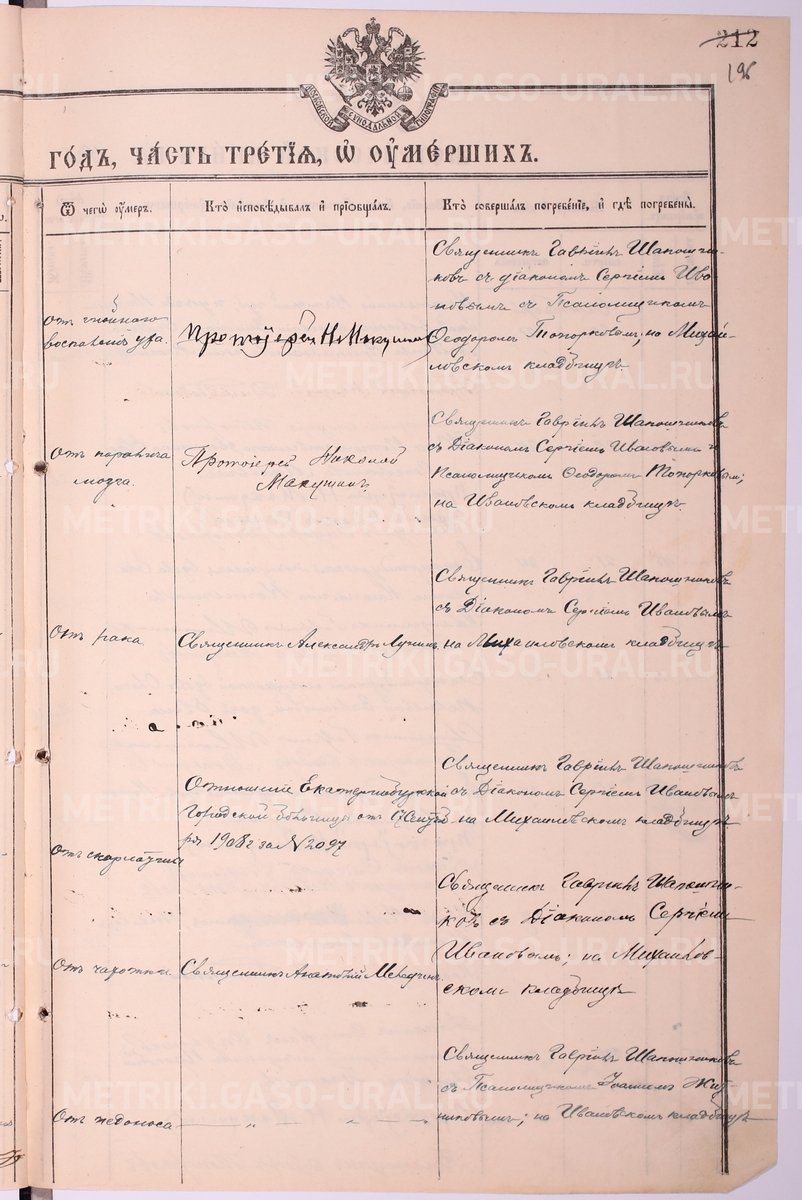 212
195
МОСКОВСКОЙ СѴНОДАЛЬНОЙ ТИПОГРАФІИ
ГОДЪ, ЧАСТЬ ТРЕТІЯ, Ѡ ОУМЕРШИХЪ.
Ѿ чегѡ оумеръ.
Кто исповѣдывалъ и пріобщалъ.
Кто совершалъ погребеніе, и гдѣ погребены.
Отъ гнойного
воспаленія уха.
Протоіерей Н Макушинъ
Священникъ Гавріилъ Шапошни-
ковъ съ діакономъ Сергіемъ Ива
новымъ съ Псаломщикомъ
Ѳеодоромъ Топорковымъ, на Михай-
ловскомъ кладбищѣ
Отъ паралича
мозга.
Протоіерей Николай
Макушинъ
Священникъ Гавріилъ Шапошниковъ
съ Діакономъ Сергіемъ Ивановымъ и
Псаломщикомъ Ѳеодоромъ Топорковым;
на Ивановскомъ кладбищѣ.
Отъ рака
Священникъ Александръ
Священникъ Гавріилъ Шапошниковъ
съ Діакономъ Сергіемъ Ивановымъ
на Михаиловскомъ кладбищѣ
Отъ скарлатины
Отношеніе Екатеринбургской
Городской больницы отъ Сентяб
ря 1908 г за № 2097
Священникъ Гавріилъ Шапошниковъ
съ Діакономъ Сергіемъ Ивановымъ
на Михаиловскомъ кладбищѣ
Отъ чахотки
Священникъ Анатолій
Священникъ Гавріилъ Шапошни-
ковъ съ Діакономъ Сергіемъ
Ивановымъ; на Михаилов-
скомъ кладбищѣ
Отъ недоноса
— „ — „ — „ —
Священникъ Гавріилъ Шапошниковъ
съ Псаломщикомъ Іоанномъ
на Ивановскомъ кладбищѣ
METRIKI.GASO-URAL.RU